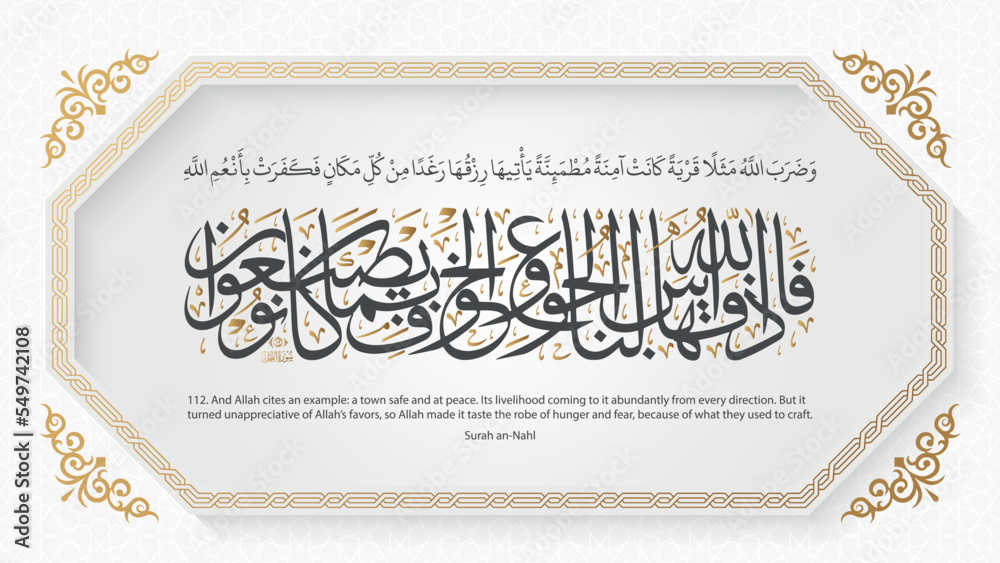 وَضَرَبَ اللَّهُ مَثَلًا قَرْيَةً كَانَتْ آمِنَةً مُطْمَئِنَّةً يَأْتِيهَا رِزْقُهَا رَغَدًا مِنْ كُلِّ مَكَانٍ فَكَفَرَتْ بِأَنْعُمِ اللَّهِ
فَأَذَاقَهَا اللَّهُ لِبَاسَ الْجُوعِ وَالْخَوْفِ بِمَا كَانُوا يَصْنَعُونَ
112. And Allah cites an example: a town safe and at peace. Its livelihood coming to it abundantly from every direction. But it
turned unappreciative of Allah's favors, so Allah made it taste the robe of hunger and fear, because of what they used to craft.
Surah an-Nahl
Adobe Stock | #549742108